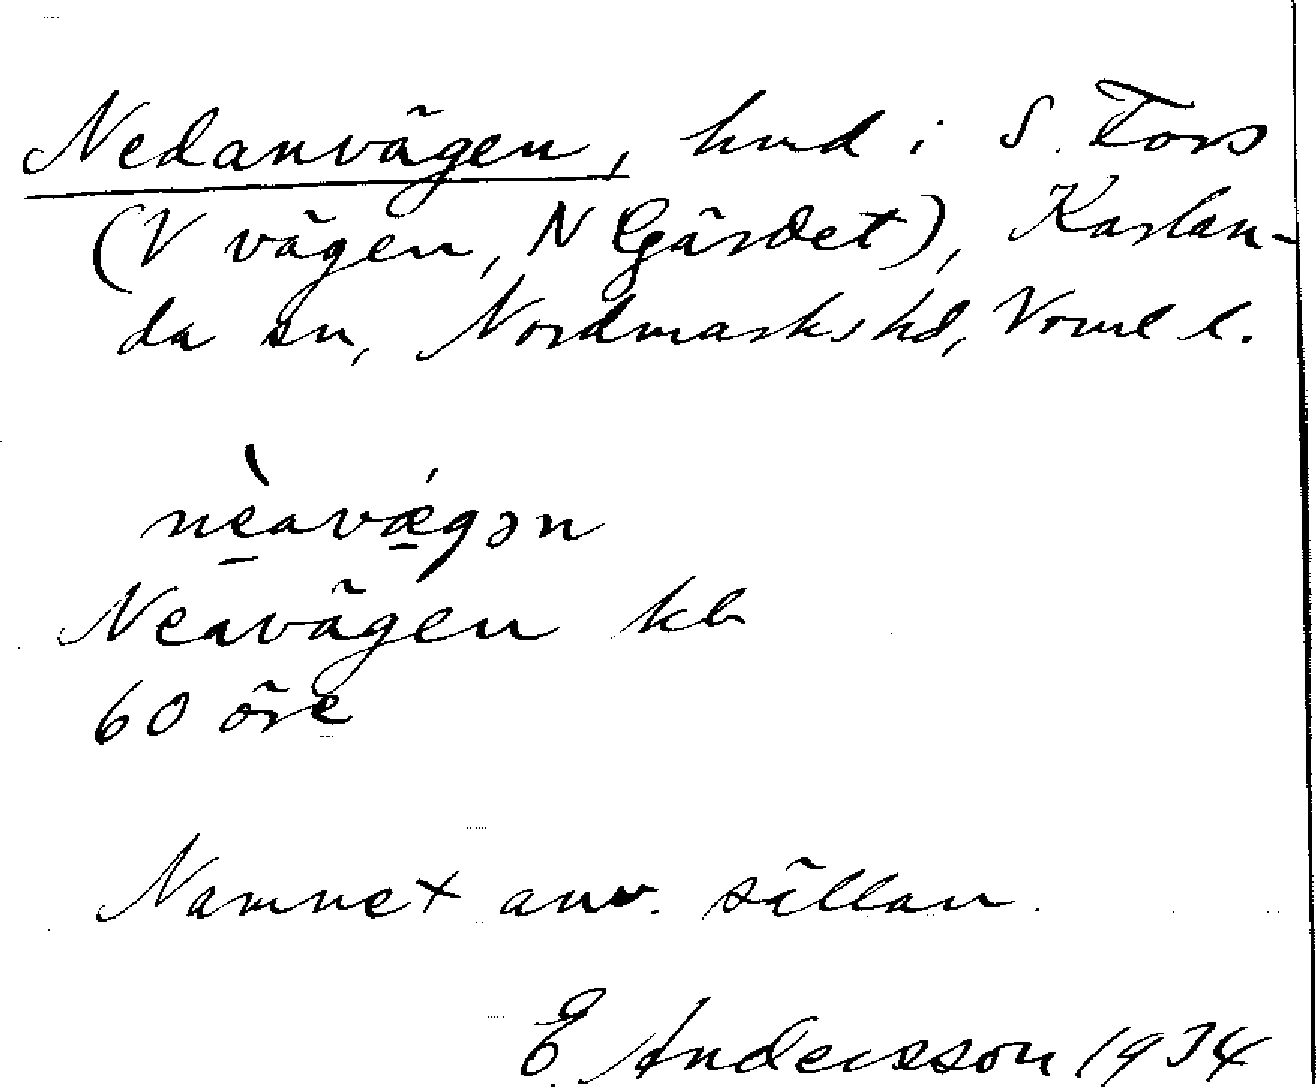 Nedanvägen, hmd i S. Fors
(V vägen, N Gärdet), Karlan-
da sn, Nordmarks hd, Vrml l.
nèavǽgən
Neavägen kb
60 öre
Namnet anv. sällan.
E Andersson 1934